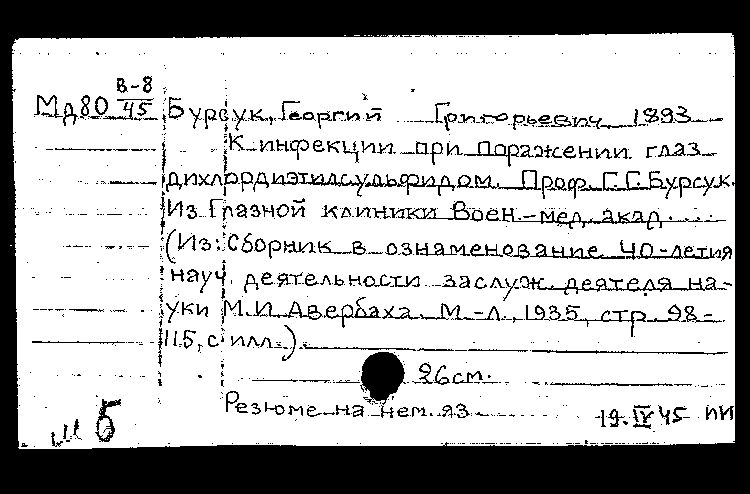 В-8
Мд80 45 Бурсук, Георгий Григорьевич 1893
К инфекции при поражении глаз
дихлордиэтилсульфидом. Проф. Г.Г. Бурсук.
Из Глазной клиники Воен.-мед. акад.
(Из: Сборник в ознаменование 40-летия
науч. деятельности заслуж. деятеля на-
уки М.И. Авербаха. М.-Л., 1935, стр. 98-
115, с илл.).
26см.
Резюме на нем. яз.
19.IV 45 ПИ
ш Б